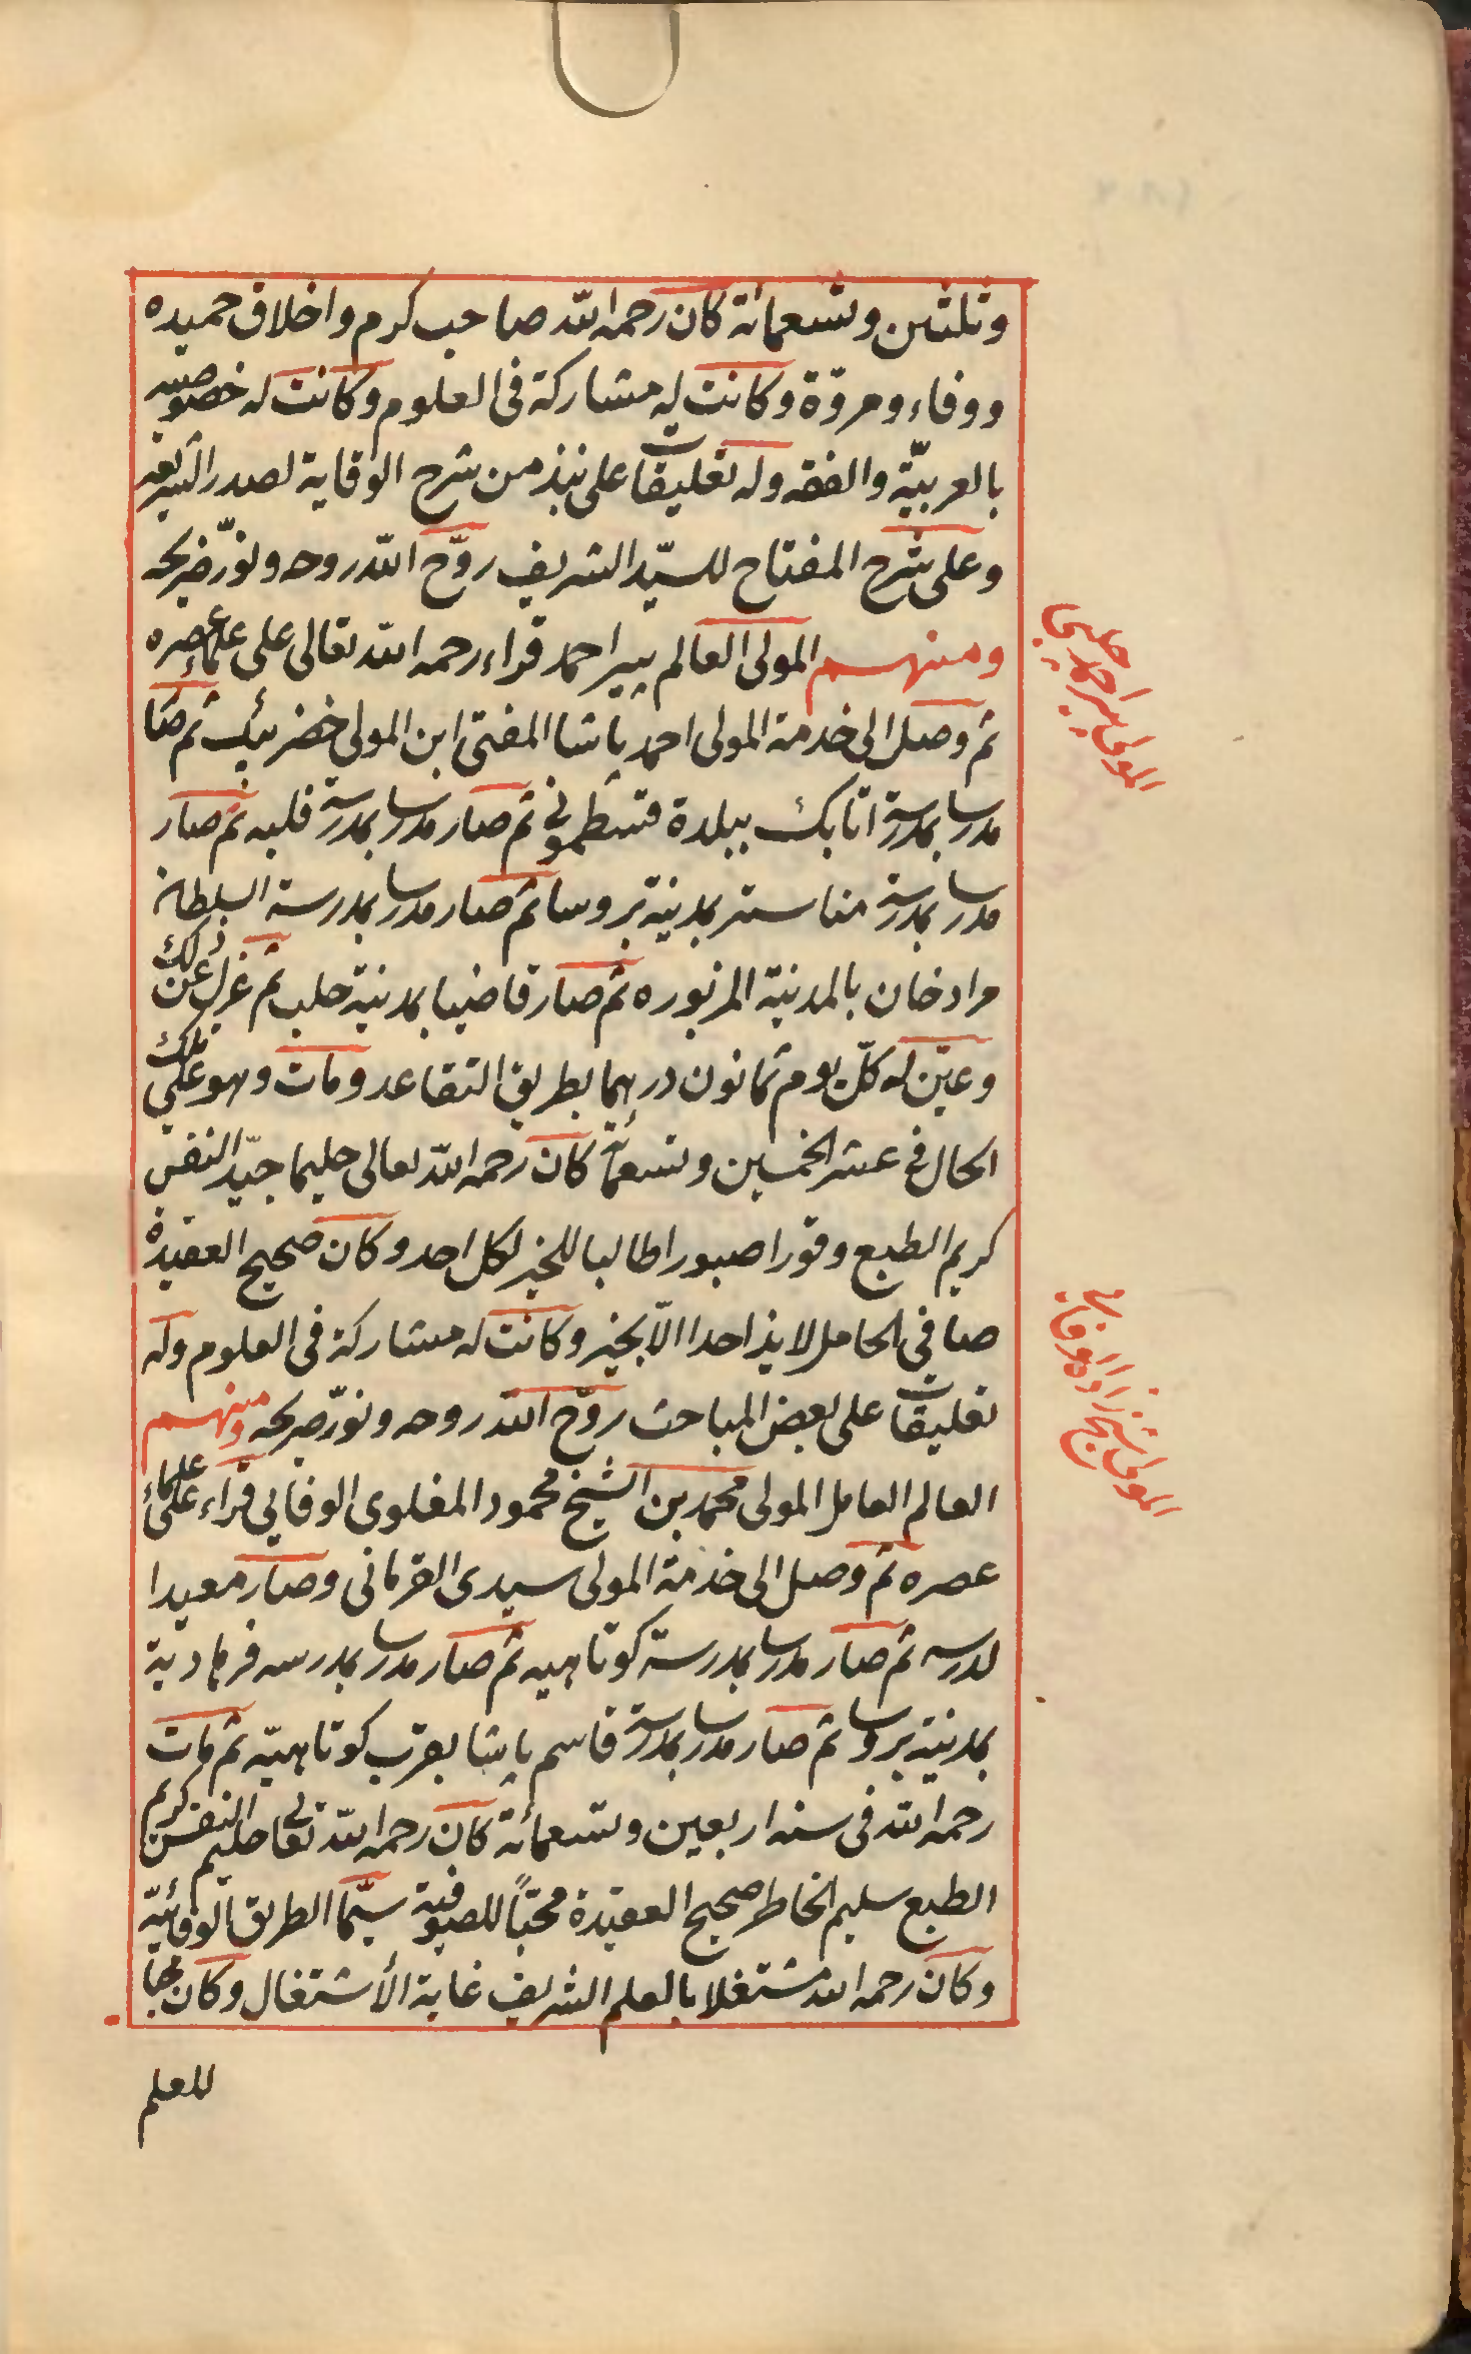 وثلثين وتسعمائة كان رحمه الله صاحب كرم واخلاق حميده
ووفاء ومروّة وكانت له مشاركة فى العلوم وكانت له خصوصيه
بالعربيّة والفقه وله تعليقات على نبذ من شرح الوقاية لصدر الشريعه
وعلى شرح المفتاح للسيّد الشريف روّح الله روحه ونوّر ضريحه
ومنهم المولى العالم پير احمد قراء رحمه الله تعالى على علماء عصره
ثم وصل الى خدمة المولى احمد پاشا المفتى ابن المولى خضر بيك ثم صار
مدرسا بمدرسة اتابك ببلدة قسطمونى ثم صار مدرسا بمدرسة فلبه ثم صار
مدرسا بمدرسة مناستر بمدينة بروسا ثم صار مدرسا بمدرسة السلطان
مراد خان بالمدينة المزبوره ثم صار قاضيا بمدينة حلب ثم عزل عن ذلك
وعيّن له كلّ يوم ثمانون درهما بطريق التقاعد ومات وهو على تلك
الحال فى عشر الخمسين وتسعمائة كان رحمه الله تعالى حليما جيّد النفس
كريم الطبع وقورا صبورا طالبا للخير لكل احد وكان صحيح العقيدة
صافى الحامل لا يذ احدا الّا بخير وكانت له مشاركة فى العلوم وله
تعليقات على بعض المباحث روّح الله روحه ونوّر ضريحه ومنهم
العالم العامل المولى محمد بن الشيخ محمود المغلوى الوفايي قراء على علماء
عصره ثم وصل الى خدمة المولى سيدى القرمانى وصار معيدا
لدرسه ثم صار مدرسا بمدرسة كوتاهيه ثم صار مدرسا بمدرسه فرهادية
بمدينة بروسا ثم صار مدرسا بمدرسة قاسم پاشا بقرب كوتاهيّه ثم مات
رحمه الله فى سنه اربعين وتسعمائة كان رحمه الله تعالى حليم النفس كريم
الطبع سليم الخاطر صحيح العقيدة محبّاً للصوفية سيّما الطريق الوفائيّة
وكان رحمه الله مشتغلا بالعلم الشريف غاية الأشتغال وكان محبا
للعلم
المولى پير احمد چلبى
المولى شيخ زاده الوفايى